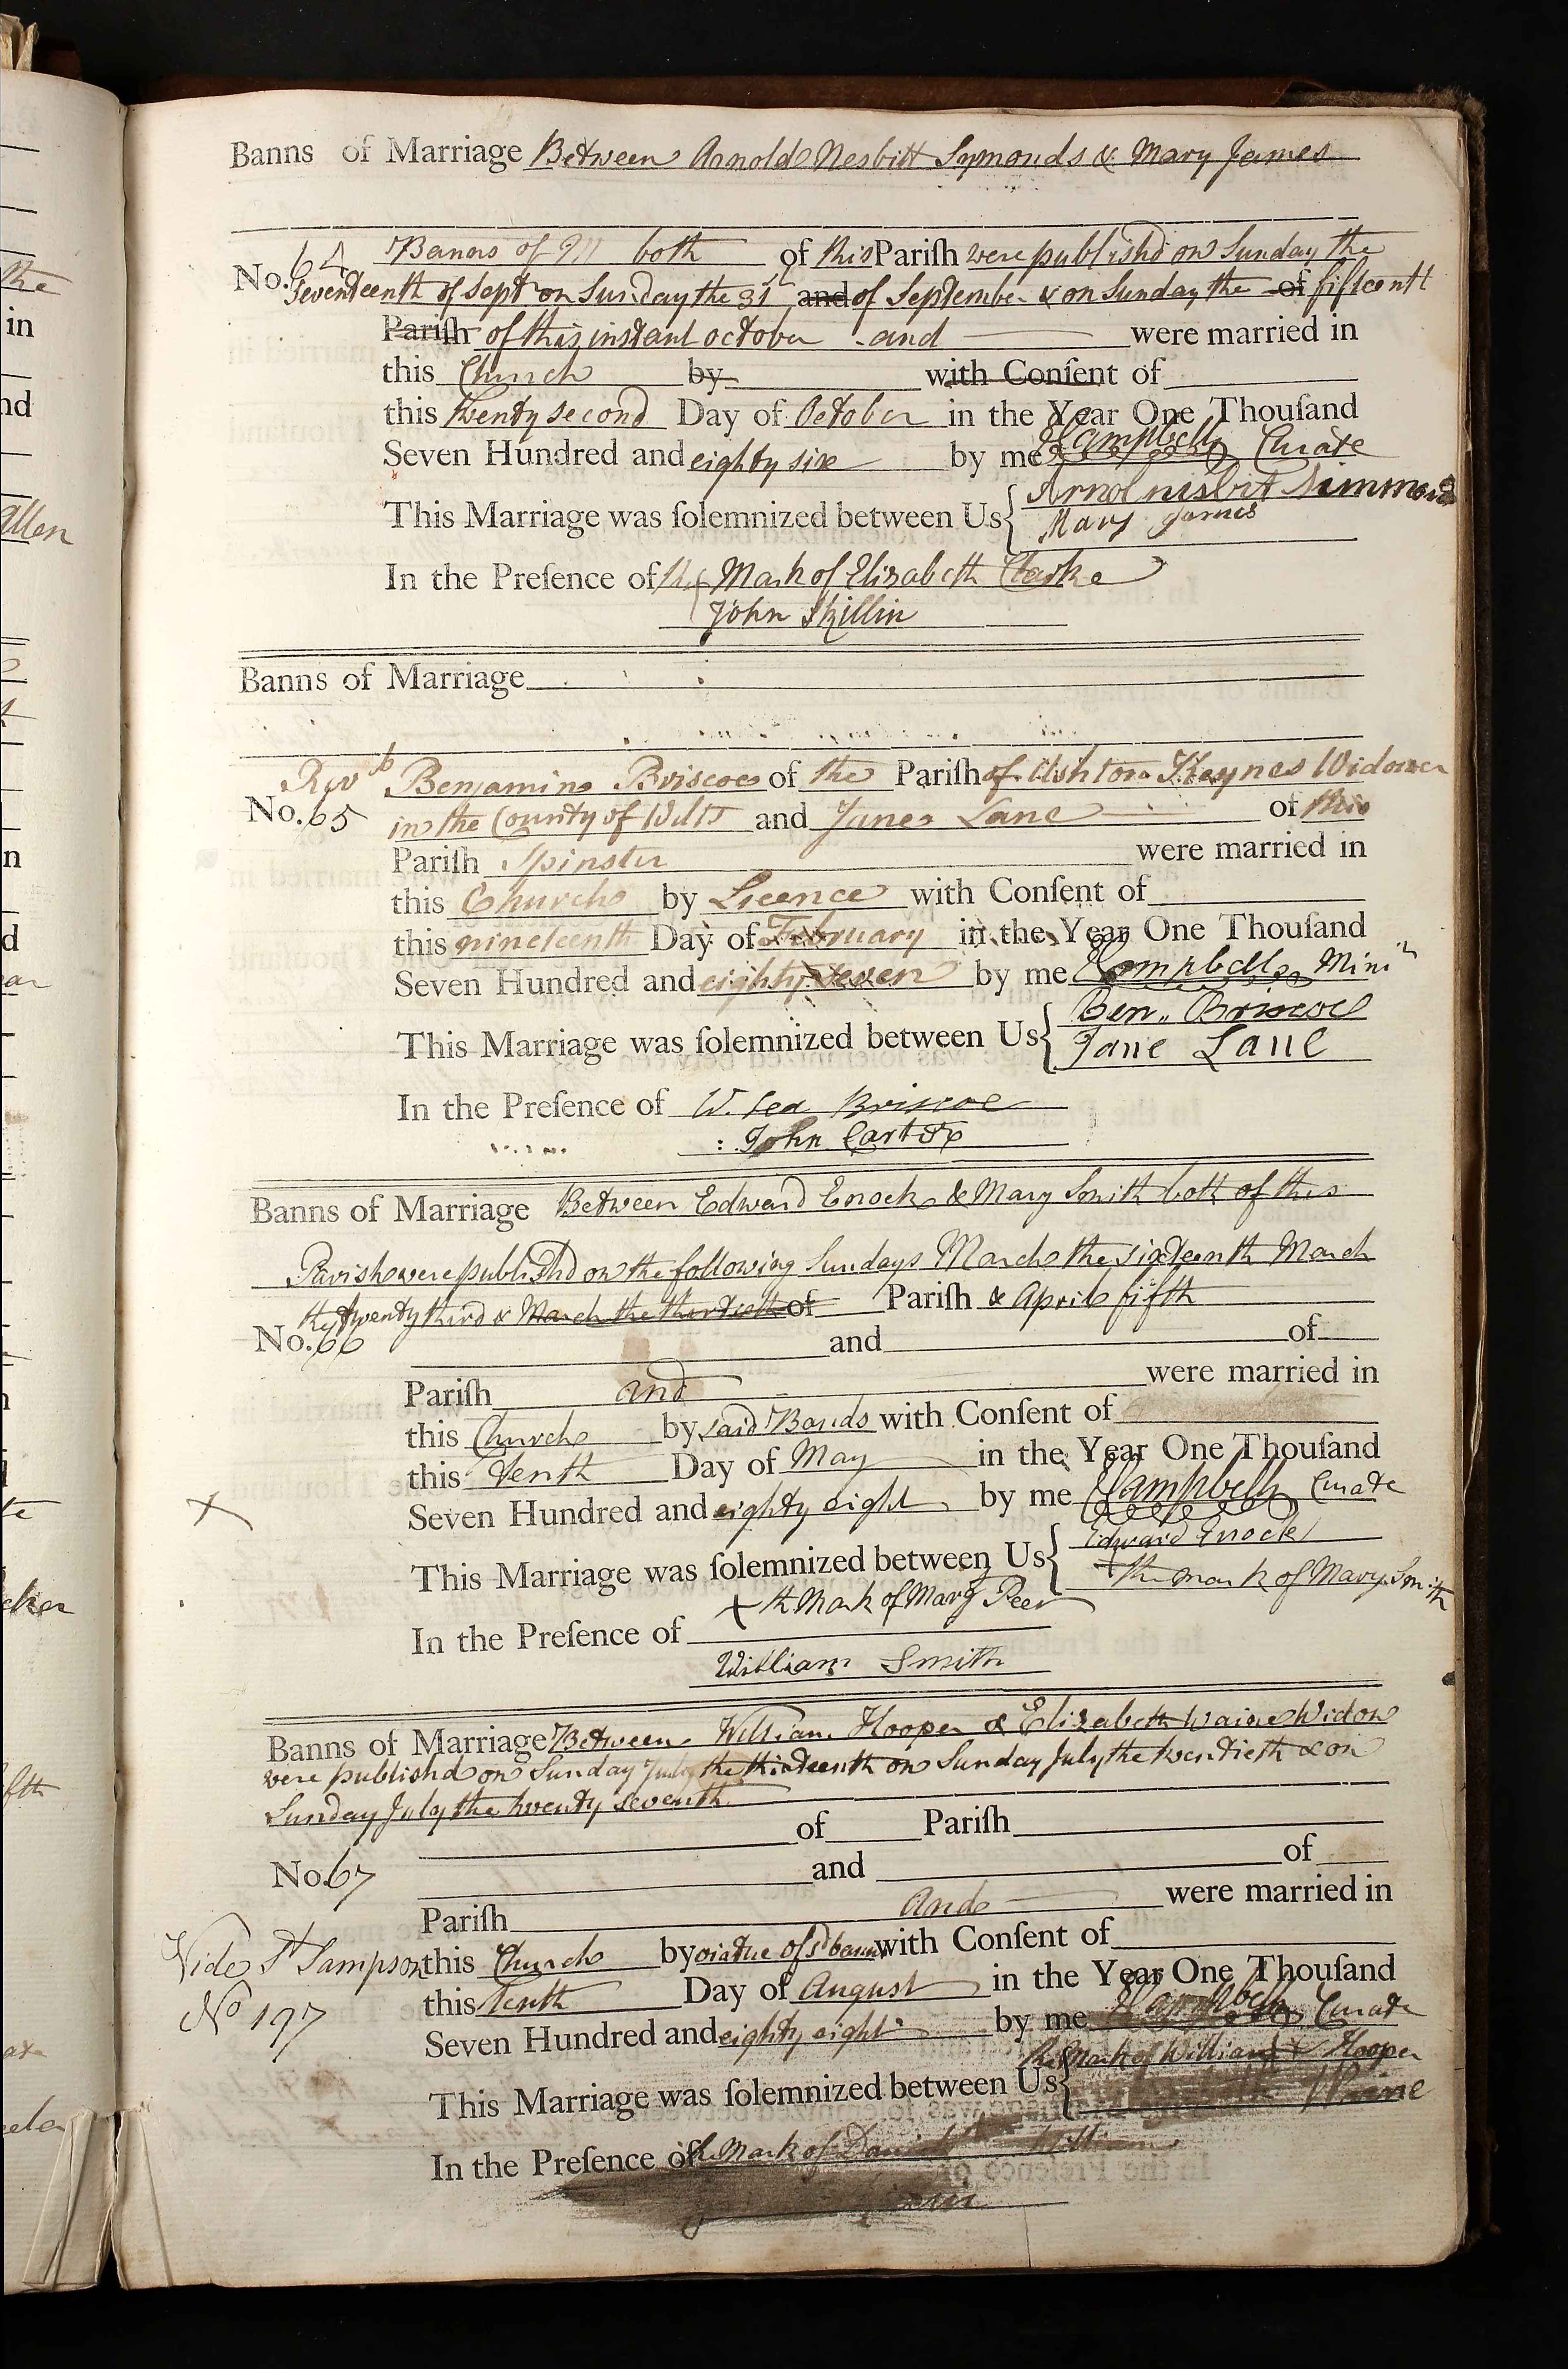 Banns of Marriage Between Arnold Nesbitt Symonds & Mary James
Banns of M both of this Pariſh were publishd on Sunday the
No. 64 Seventeenth of Sept on Sunday the 31 and of September & on Sunday the of fifteenth
Pariſh of this instant october and were married in
this Church by with Conſent of
this twenty second Day of October in the Year One Thouſand
Seven Hundred and eighty six by me Campbell Curate
This Marriage was ſolemnized between Us { Arnol nisbit Simmons
Mary James
In the Preſence of the Mark of Elizabeth Clarke
John Skillin
Banns of Marriage
Revd Benjamin Briscoe of the Pariſh of Ashton Keynes Widower
No. 65 in the County of Wilts and Jane Lane of this
Pariſh Spinster were married in
this Church by Licence with Conſent of
this nineteenth Day of February in the Year One Thouſand
Seven Hundred and eighty seven by me Campbell Minr
This Marriage was ſolemnized between Us { Ben,, Briscoe
Jane Lane
In the Preſence of W. Lea Briscoe
John Carter
Banns of Marriage Between Edward Enock & Mary Smith both of this
Parish were publishd on the following Sundays March the sixteenth March
the twenty third & March the thirtieth of Pariſh & April fifth
No. 66 and of
Pariſh and were married in
this Church by said Bands with Conſent of
this tenth Day of May in the Year One Thouſand
Seven Hundred and eighty eight by me Campbell Curate
X
This Marriage was ſolemnized between Us { Edward Enock
+ the mark of Mary Smith
+ th Mark of Mary Peer
In the Preſence of
William Smith
Banns of Marriage Between William Hooper & Elizabeth Waine Widow
were publishd on Sunday July the thirteenth on Sunday July the twentieth & on
Sunday July the twenty seventh
of Pariſh
No. 67 and of
Pariſh And were married in
Vide St Sampson this Church by virtue of sd banns with Conſent of
No 197 this tenth Day of August in the Year One Thouſand
Seven Hundred and eighty eight by me Campbell Curate
the Mark of William X Hooper
This Marriage was ſolemnized between Us { Waine
In the Preſence of the Mark of